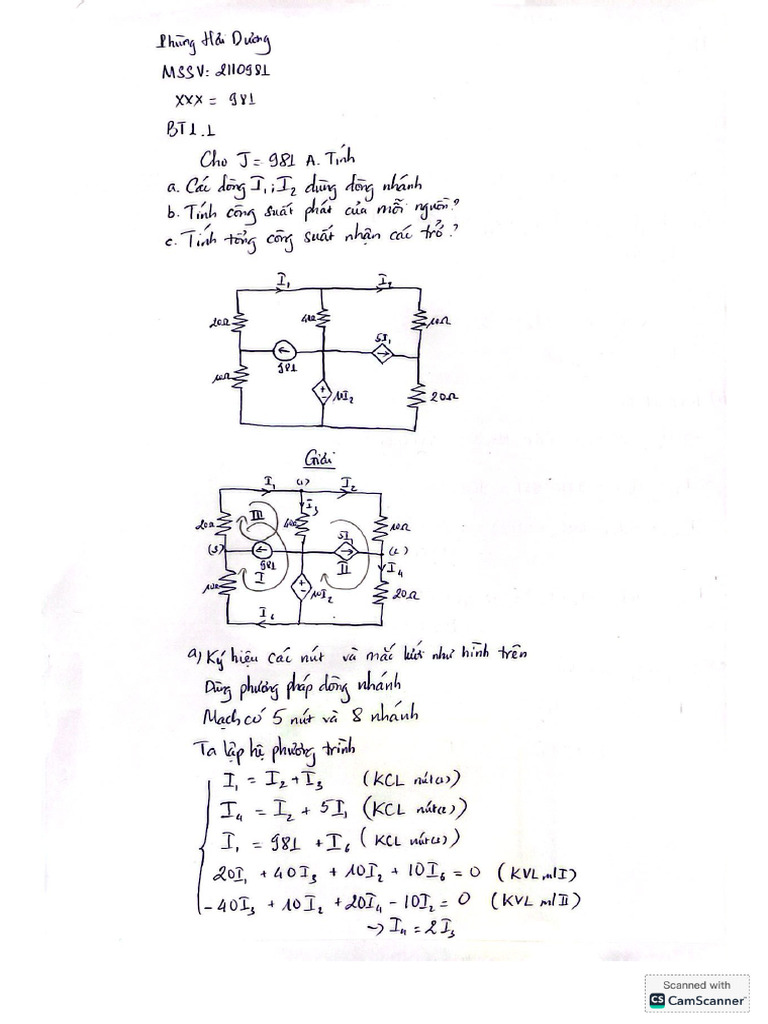 Phùng Hải Dương
MSSV: 2110981
xxx = 981
BT1.1
Cho J = 981 A. Tính
a. Các dòng I₁; I₂ dùng dòng nhánh
b. Tính công suất phát của mỗi nguồn?
c. Tính tổng công suất nhận các trở?
I₁ I₂
20Ω 40Ω 10Ω
5I₁
981
10Ω 10I₂ 20Ω
Giải
I₁ (1) I₂
I₃
20Ω III 40Ω 10Ω
5I₁
(3) (2)
981 II I₄
10Ω I 10I₂ 20Ω
I₆
a) Ký hiệu các nút và mắc lưới như hình trên
Dùng phương pháp dòng nhánh
Mạch có 5 nút và 8 nhánh
Ta lập hệ phương trình
I₁ = I₂ + I₃ (KCL nút(1))
I₄ = I₂ + 5I₁ (KCL nút(2))
I₁ = 981 + I₆ (KCL nút(3))
20I₁ + 40I₃ + 10I₂ + 10I₆ = 0 (KVL m/I)
-40I₃ + 10I₂ + 20I₄ - 10I₂ = 0 (KVL m/II)
→ I₄ = 2I₃
Scanned with
CS CamScanner